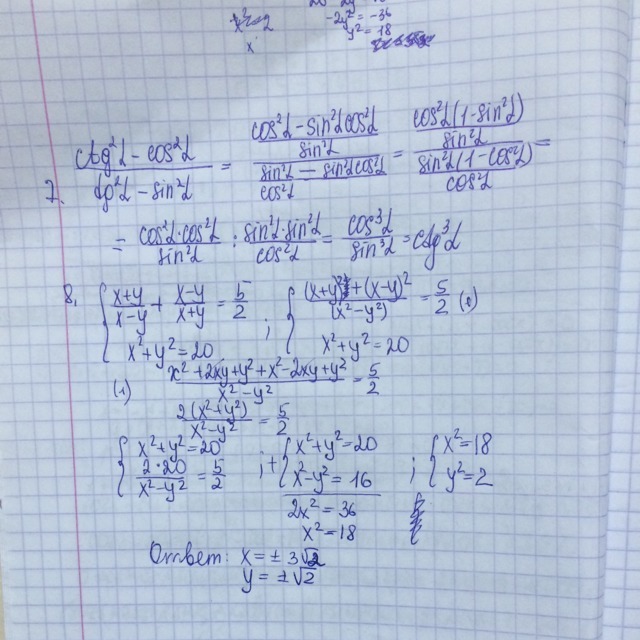 x²=2
-2y² = -36
y² = 18
x
7. (ctg²α - cos²α)/(tg²α - sin²α) = ((cos²α - sin²α cos²α)/sin²α)/((sin²α - sin²α cos²α)/cos²α) = (cos²α(1-sin²α)/sin²α)/(sin²α(1-cos²α)/cos²α) =
= (cos²α·cos²α)/sin²α : (sin²α·sin²α)/cos²α = cos³α/sin³α = ctg³α
8. { (x+y)/(x-y) + (x-y)/(x+y) = 5/2 ; { ((x+y)²+(x-y)²)/(x²-y²) = 5/2 (1)
x²+y²=20 x²+y²=20
(1) (x²+2xy+y²+x²-2xy+y²)/(x²-y²) = 5/2
2(x²+y²)/(x²-y²) = 5/2
{ x²+y²=20 ; + { x²+y²=20 ; { x²=18
(2·20)/(x²-y²) = 5/2 x²-y² = 16 y²=2
2x² = 36
x² = 18
Ответ: x = ± 3√2
y = ±√2